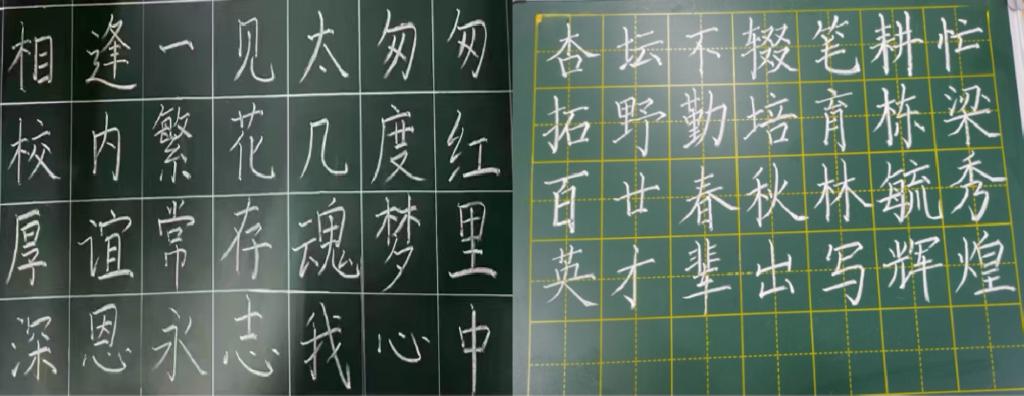 相逢一见太匆匆
校内繁花几度红
厚谊常存魂梦里
深恩永志我心中
杏坛不辍笔耕忙
拓野勤培育栋梁
百廿春秋林毓秀
英才辈出写辉煌